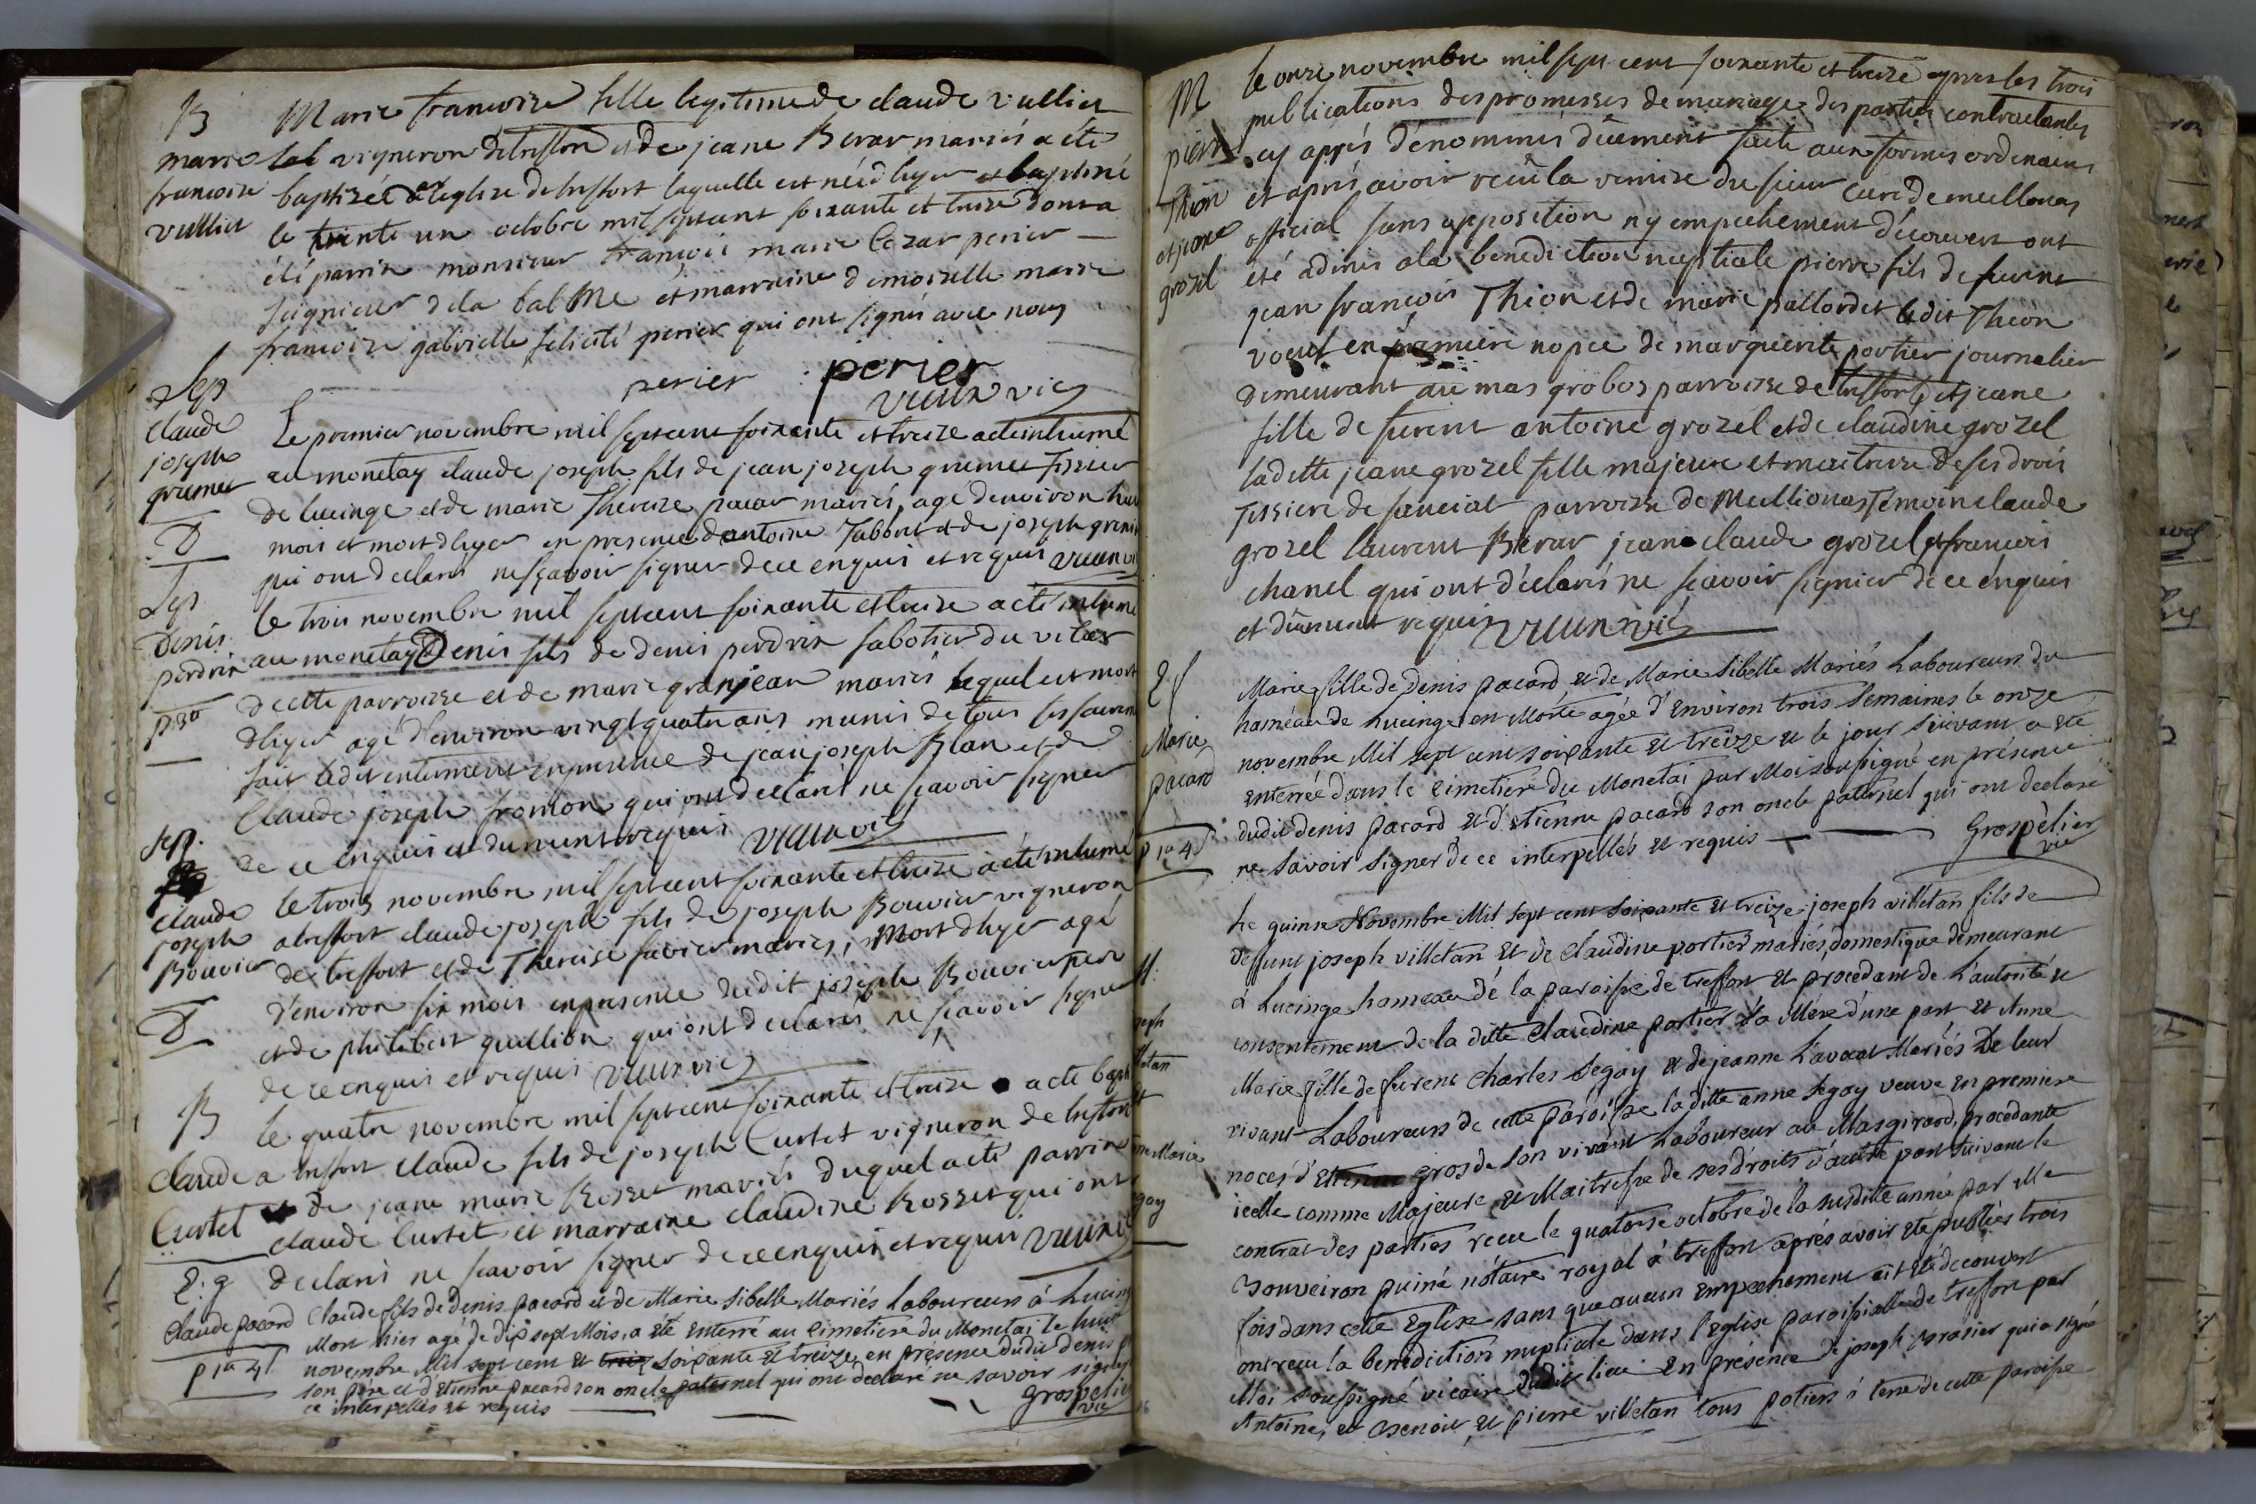 B Marie francoise fille legitime de claude vulliet
marie vigneron de treffort et de jeane Berar mariés a été
francoise baptizée a leglise de treffort laquelle est née dhyer et baptisé
vulliet le trente un octobre mil septcent soixante et treize dont a
été parrin monsieur francois marie Cezar perier
seignieur de la balme et marraine demoiselle marie
francoize gabrielle felicité perier qui ont signés avec nous
perier perier
vuun vic
Sep
claude Le premier novembre mil septcent soixante et treize a eté inhumé
joseph au monetay claude joseph fils de jean joseph grumet tissier
grumet de lucinge et de marie Thereize pacar mariés, agé denviron huit
mois et mort dhyer en presence dantoine Jabbert et de joseph
D qui ont declarés nesçavoir signer de ce enquis et requis vuun vic
Sep le trois novembre mil septcent soixante et treize a eté inhumé
Denis au monetay Denis fils de denis perdrix sabotier du
perdrix decette parroisse et de marie granjean mariés lequel est mort
dhyer agé denviron vingt quatre ans munis de tous ses sacrem
fait ledit enterrement enpresence de jean joseph Blan et de
Claude joseph fromon qui ont declaré ne sçavoir signer
de ce enquis et dument requis vuun vic
Sep.
claude le trois novembre mil septcent soixante et treize a eté inhumé
joseph a treffort claude joseph fils de joseph Bouvier vigneron
Bouvier de treffort et de Thereise favier mariés, Mort dhyer agé
D d'environ six mois enpresence dudit joseph Bouvier pere
et de philibert guillion qui ont declarés ne sçavoir signer
de ce enquis et requis vuun vic
B le quatre novembre mil septcent soixante et treize a eté bapt
Claude a treffort claude fils de joseph Curtet vigneron de treffort
Curtet et de jeane marie Rosset mariés duquel a eté parrin
claude Curtet et marraine claudine Rosset qui ont
declarés ne sçavoir signer de ce enquis et requis vuun vic
E. g
Claude pacard Claude fils de Denis pacard et de Marie Sibelle Mariés Laboureurs à Lucinge
Mort hier agé de dix sept Mois, a Eté Enterré au Cimetiere du Monetai le huit
p 1a 4s novembre Mil Sept cent et soixante et treize en presence dudit denis
son pére et d'Etienne pacard son oncle paternel qui ont declaré ne savoir signer
ce interpellés et requis Grospelier
vic
M le onze novembre mil sept cent soixante et treize apres les trois
publications des promesses de mariage des parties contractantes
pierre cy aprés dénommés dûement faite aux formes ordinaires
Thion et aprés avoir reçû la remise du sieur curé de meillonas
et jeane official sans opposition ny empechement découvert ont
grozel été admis a la benediction nuptiale pierre fils de furent
jean francois Thion et de marie pallordet ledit Thion
voeuf en premiere nopce de marguerite portier journalier
demeurant au mas grobos parroisse de treffort, et jeane
fille de furent antoine grozel et de claudine grozel
laditte jeane grozel fille majeure et maitresse de ses drois
tissiere de sanciat parroisse de Meillionas Temoin claude
grozel laurent Berar jean claude grozel et francois
chanel qui ont déclarés ne sçavoir signier de ce énquis
et dûment requis vuun vic
E. f
Marie fille de Denis pacard et de Marie Sibelle Mariés Laboureurs du
hameau de Lucinge est Morte agée d'Environ trois Semaines le onze
Marie novembre Mil sept cent soixante et treize et le jour Suivant a été
pacard Enterrée dans le Cimetiére du Monetai par Moi soussigné en présence
dudit denis pacard et d'Etienne pacard son oncle paternel qui ont declaré
p 1a 4s ne Savoir Signer de ce interpellés et requis Grospelier
vic
Le quinze Novembre Mil Sept cent Soixante et treize joseph villetan fils de
deffunt joseph villetan et de Claudine portier mariés, domestique demeurant
M. à Lucinge hameau de la paroisse de treffort et procedant de L'autorité et
seph consentement de la ditte Claudine portier Sa Mére d'une part et Anne
lletan Marie fille de furent Charles Segoy et de jeanne L'avocat Mariés De leur
et vivant Laboureurs de cette paroisse la ditte anne Segoy veuve en premiere
nne Marie noces d'Etienne Gros de Son vivant Laboureur au Masgirard, procedante
egoy icelle comme Majeure et Maitresse de ses droits d'autre part Suivant le
contrat des parties recu le quatorze octobre de la susdite année par Me
Bouveiron puiné nótaire royal à treffort aprés avoir été publiés trois
fois dans cette Eglise sans que aucun Empechement ait été decouvert
ont recu la Benediction nuptiale dans l'Eglise paroissialle de treffort par
Moi soussigné vicaire dudit lieu En présence de joseph qui a signé
Antoine, et Benoit, et pierre villetan tous potiers à terre de cette paroisse